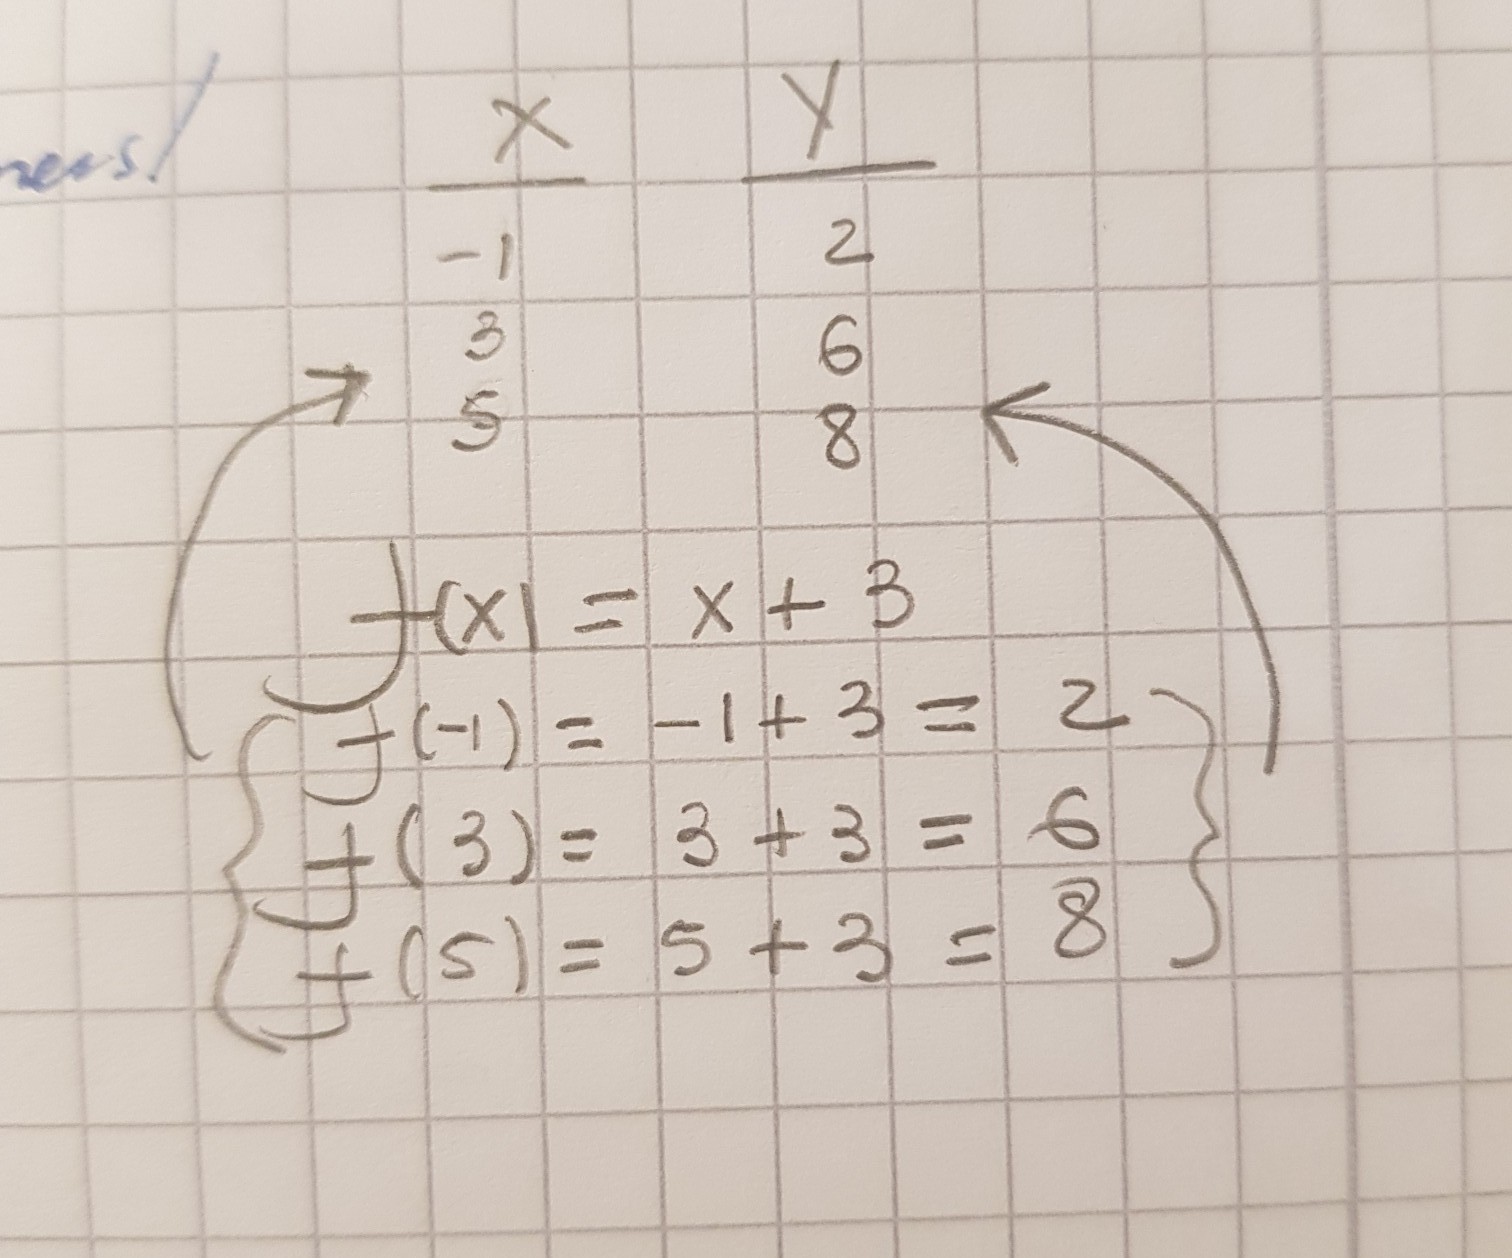 x y
-1 2
3 6
5 8
f(x) = x + 3
f(-1) = -1 + 3 = 2
f(3) = 3 + 3 = 6
f(5) = 5 + 3 = 8